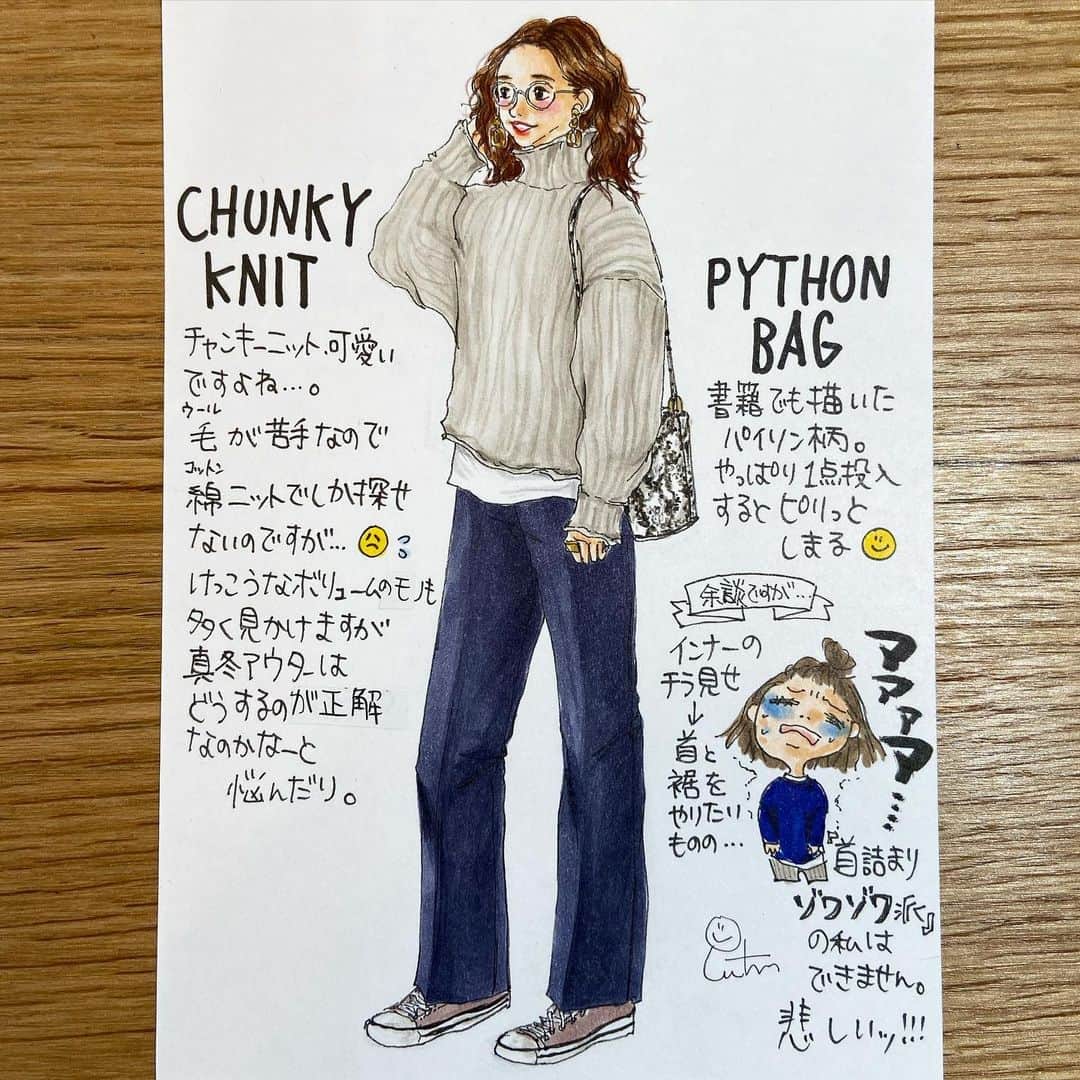 CHUNKY
KNIT
チャンキーニット、可愛い
ですよね…。
ウール
毛が苦手なので
コットン
綿ニットでしか探せ
ないのですが…
けっこうなボリュームのモノも
多く見かけますが
真冬アウターは
どうするのが正解
なのかなーと
悩んだり。
PYTHON
BAG
書籍でも描いた
パイソン柄。
やっぱり1点投入
するとピリっと
しまる
余談ですが…
インナーの
チラ見せ
↓
首と
裾を
やりたい
ものの…
ママァァ…
『首詰まり
ゾワゾワ派』
の私は
できません。
悲しいッ!!!